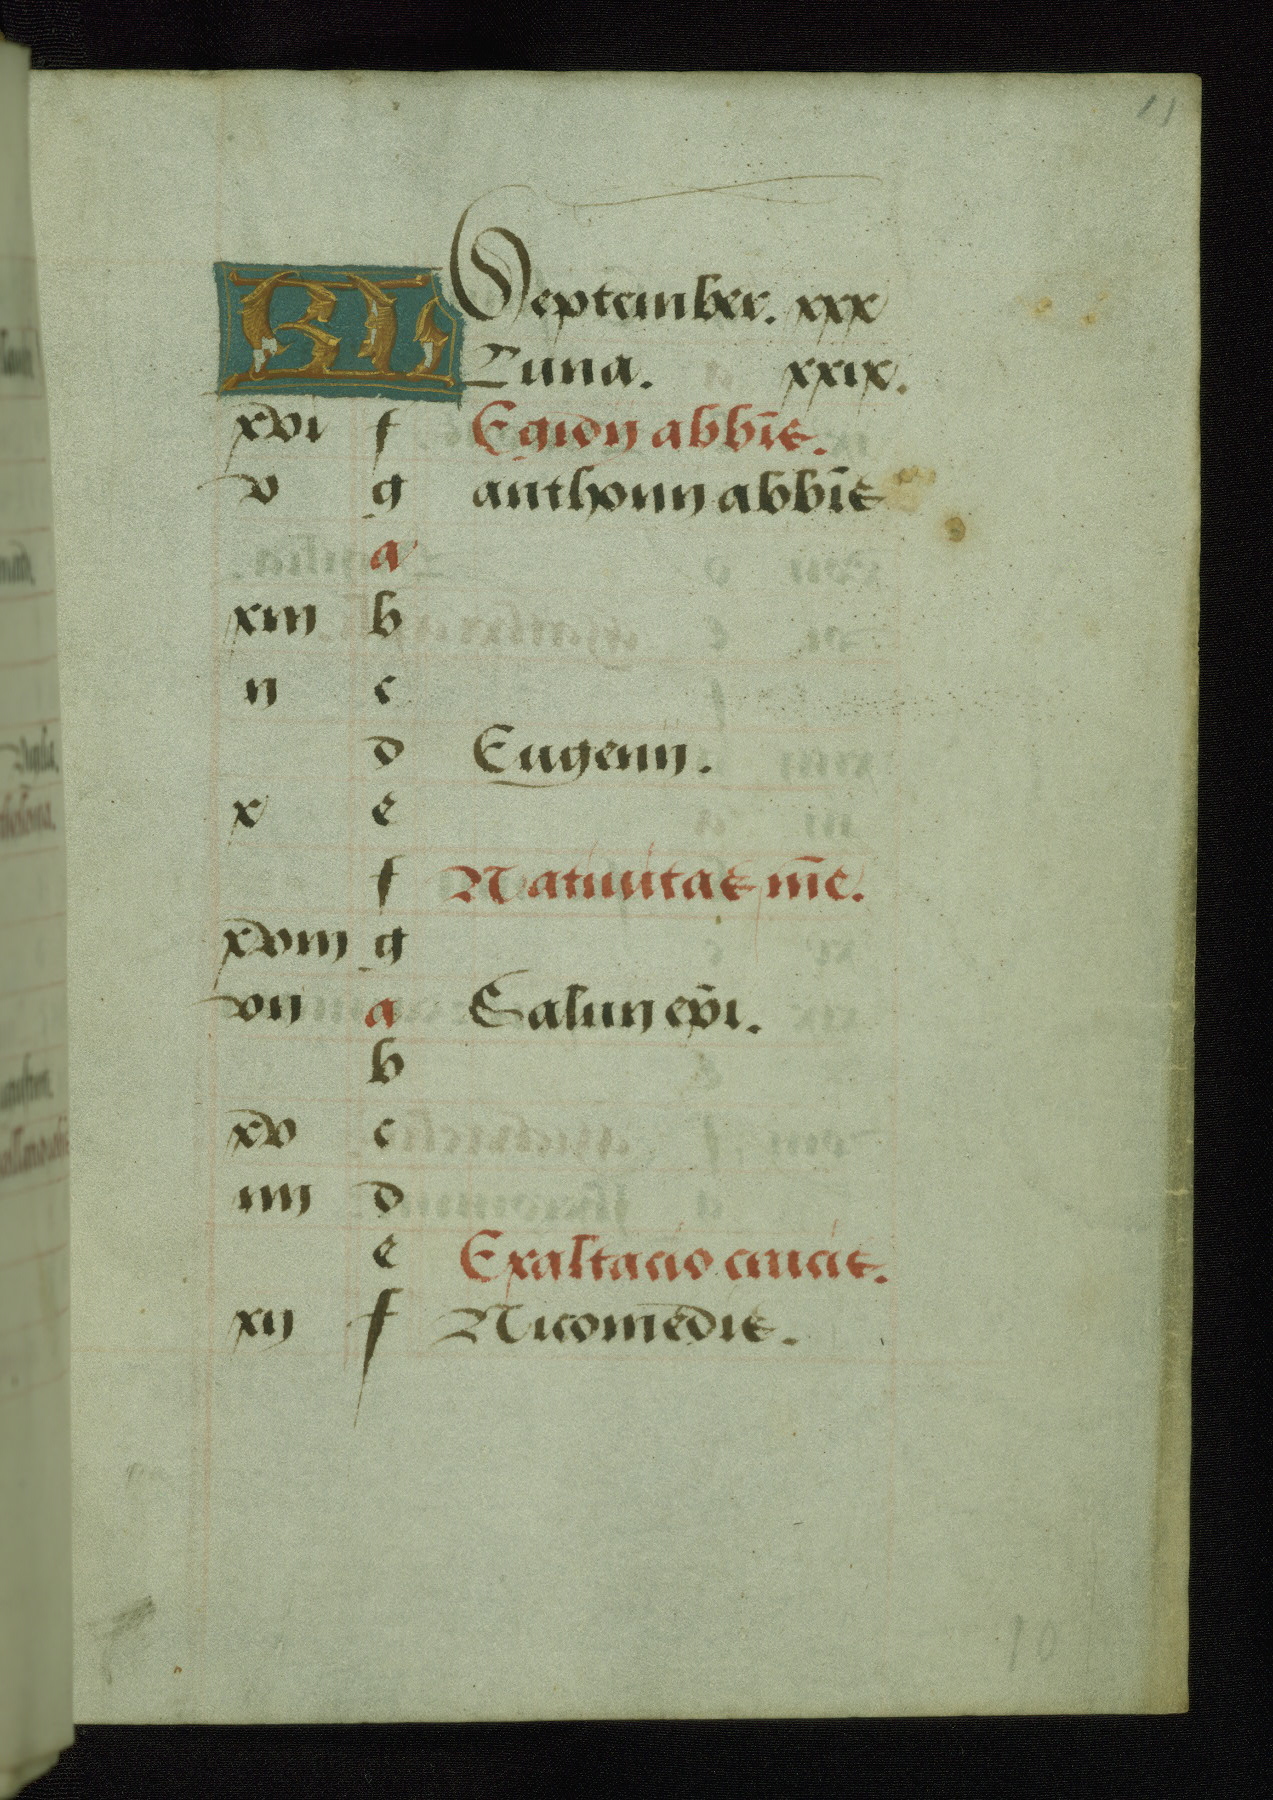 11
KL September. xxx
Luna. xxix.
xvi f Egidij abbīs.
v g anthonij abbīs
a
xiii b
ii c
d Eugenij.
x e
f Natiuitas m̄e.
xviii g
vii a Saluij ep̄i.
b
xv c
iiii d
e Exaltacio crucis.
xij f Nicomēdis.
10